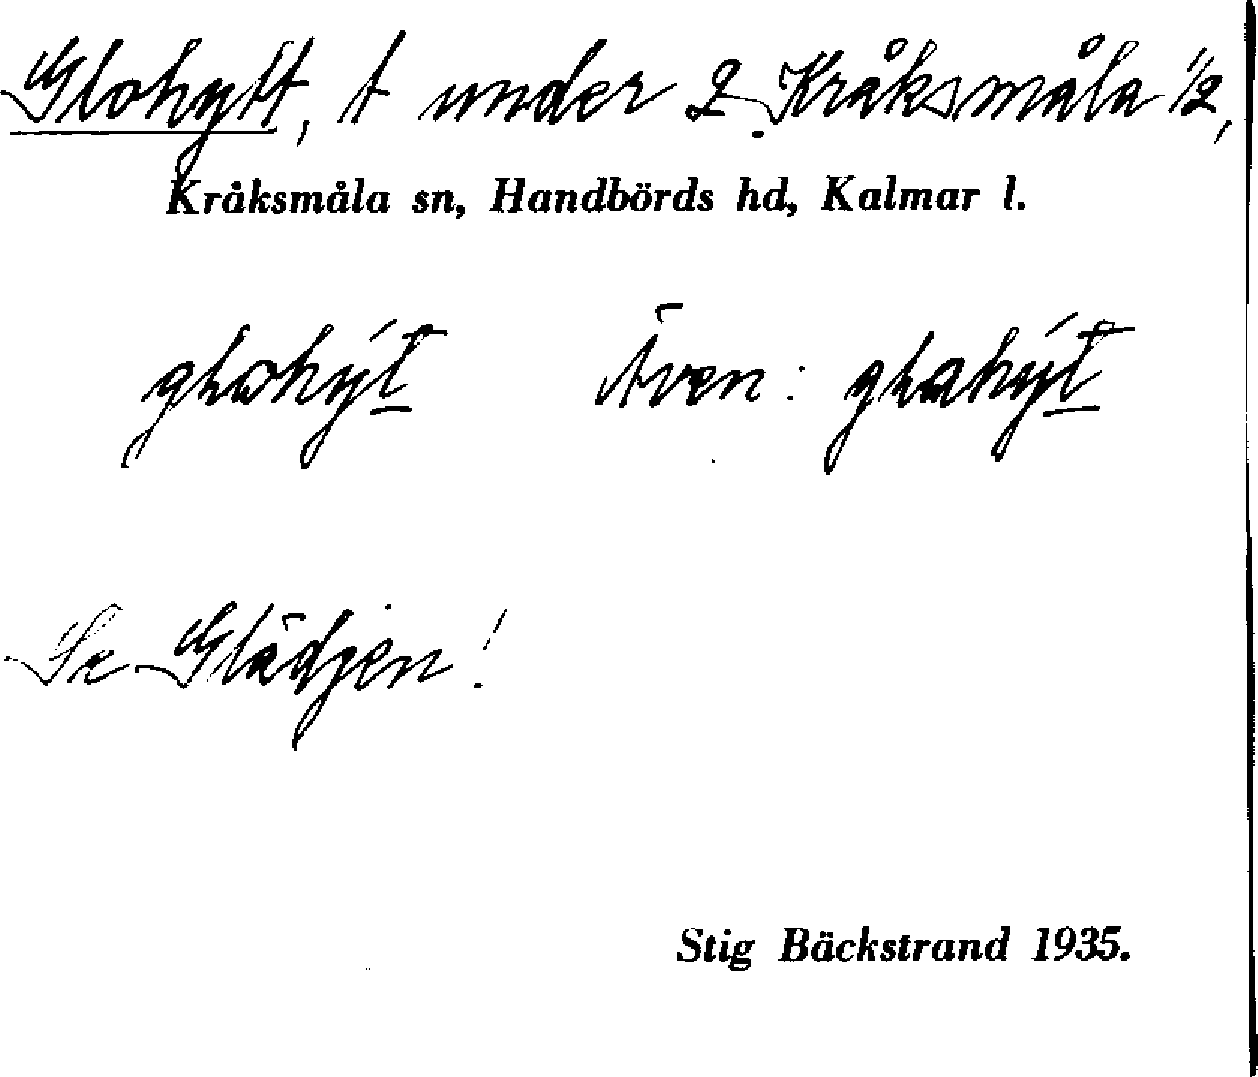 Glohytt, t under 2 Kråksmåla 1/2,
Kråksmåla sn, Handbörds hd, Kalmar l.
glohýt Även: glahýt
Se Glädjen!
Stig Bäckstrand 1935.